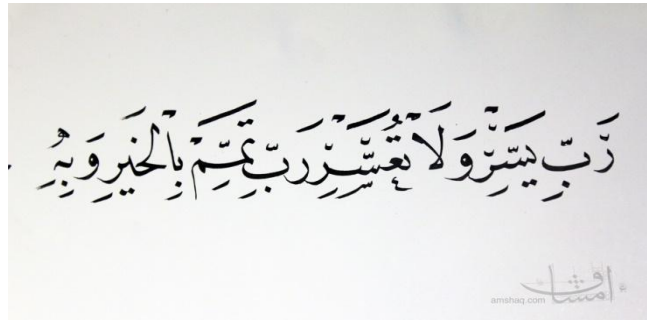 رَبِّ يَسِّرْ وَلَا تُعَسِّرْ رَبِّ تَمِّمْ بِالْخَيْرِ وَبِهِ
امشاق
amshaq.com